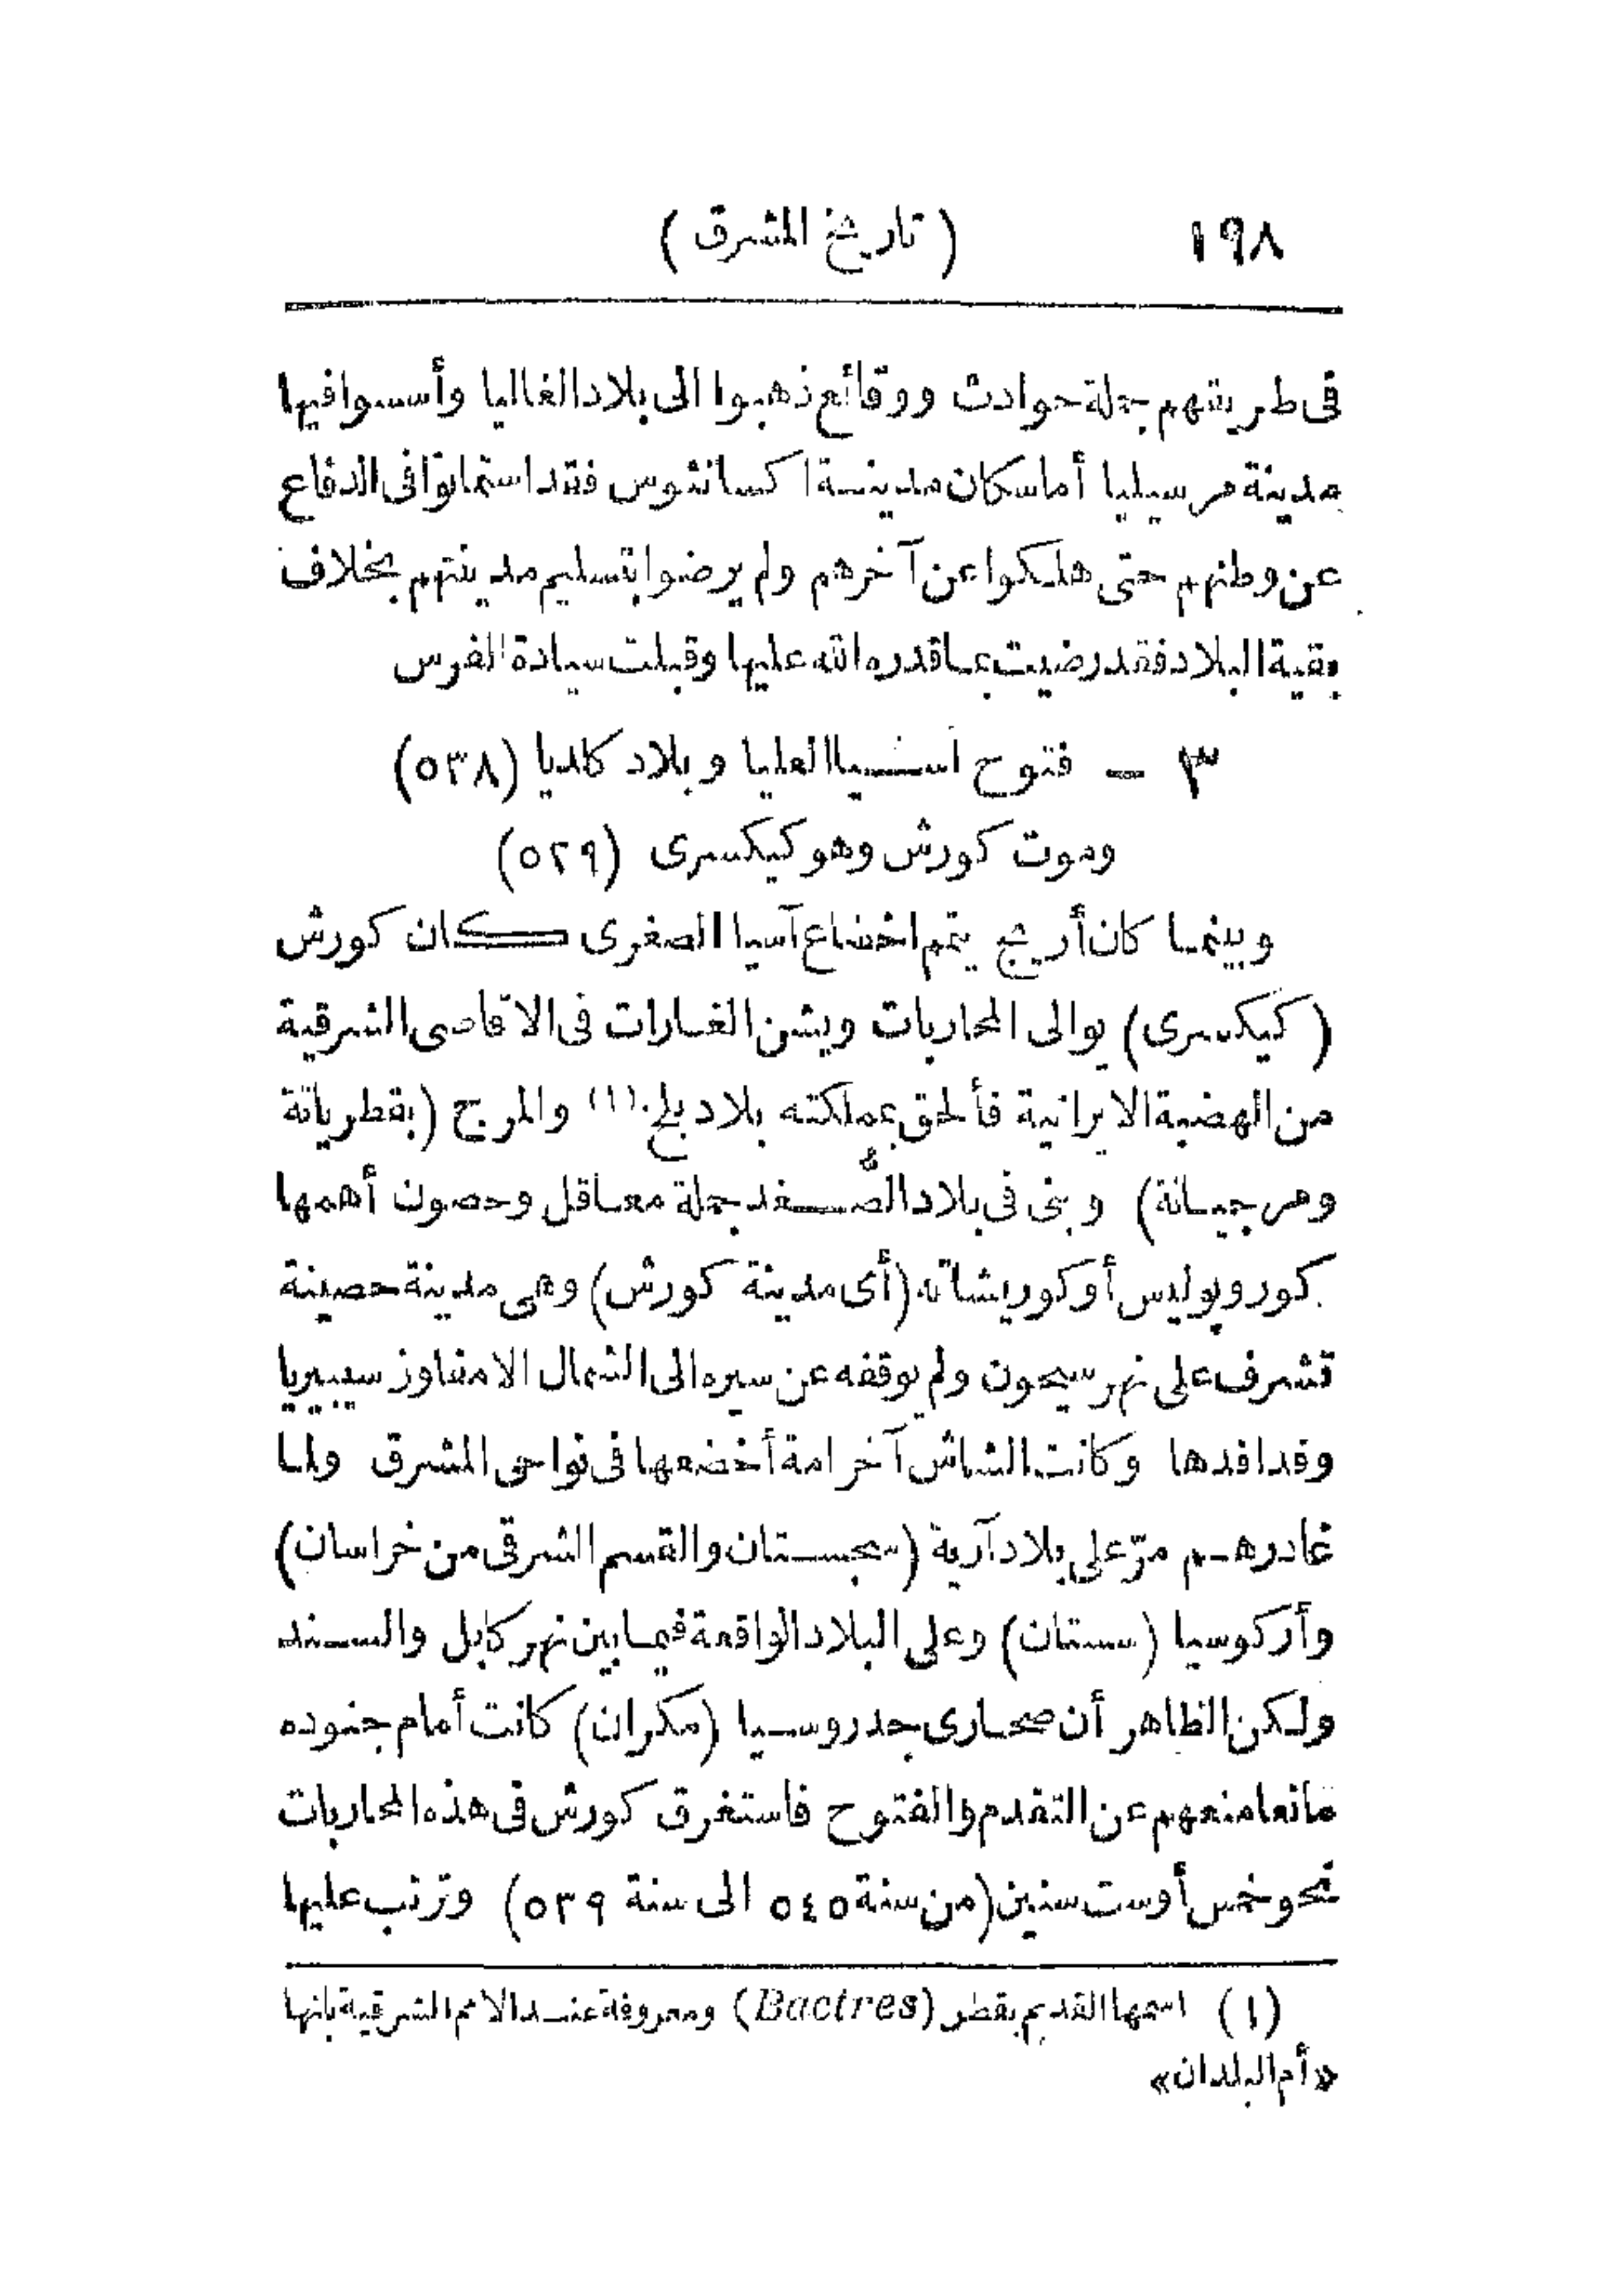 ١٩٨ (تاريخ المشرق)
فى طريقهم جملة حوادث ووقائع ذهبوا الى بلاد الغاليا وأسسوا فيها
مدينة مرسيليا أما سكان مدينة اكسانثوس فقد استماتوا فى الدفاع
عن وطنهم حتى هلكوا عن آخرهم ولم يرضوا بتسليم مدينتهم بخلاف
بقية البلاد فقد رضيت بما قدره الله عليها وقبلت سيادة الفرس
٣ – فتوح اسيا العليا وبلاد كلديا (٥٣٨)
وموت كورش وهو كيكسرى (٥٢٩)
وبينما كان أريج يتمم اخضاع آسيا الصغرى كان كورش
(كيكسرى) يوالى المحاربات ويشن الغارات فى الاقاصى الشرقية
من الهضبة الايرانية فألحق بمملكته بلاد بلخ (١) والمرج (بقطريانة
ومرجيانة) وبنى فى بلاد الصُّغد جملة معاقل وحصون أهمها
كوروپوليس أو كوريشاته (أى مدينة كورش) وهى مدينة حصينة
تشرف على نهر سيحون ولم يوقفه عن سيره الى الشمال الا مفاوز سيبيريا
وفدافدها وكانت الشاش آخر امة أخضعها فى نواحى المشرق ولما
غادرهم مرّ على بلاد آرية (سجستان والقسم الشرقى من خراسان)
وأركوسيا (سستان) وعلى البلاد الواقعة فيما بين نهر كابل والسند
ولكن الظاهر أن صحارى جدروسيا (مكران) كانت أمام جنوده
مانعا منعهم عن التقدم والفتوح فاستغرق كورش فى هذه المحاربات
نحو خمس أو ست سنين (من سنة ٥٤٥ الى سنة ٥٣٩) وترتب عليها
(١) اسمها القديم بقطر (Bactres) ومعروفة عند الامم الشرقية بانها
«أم البلدان»